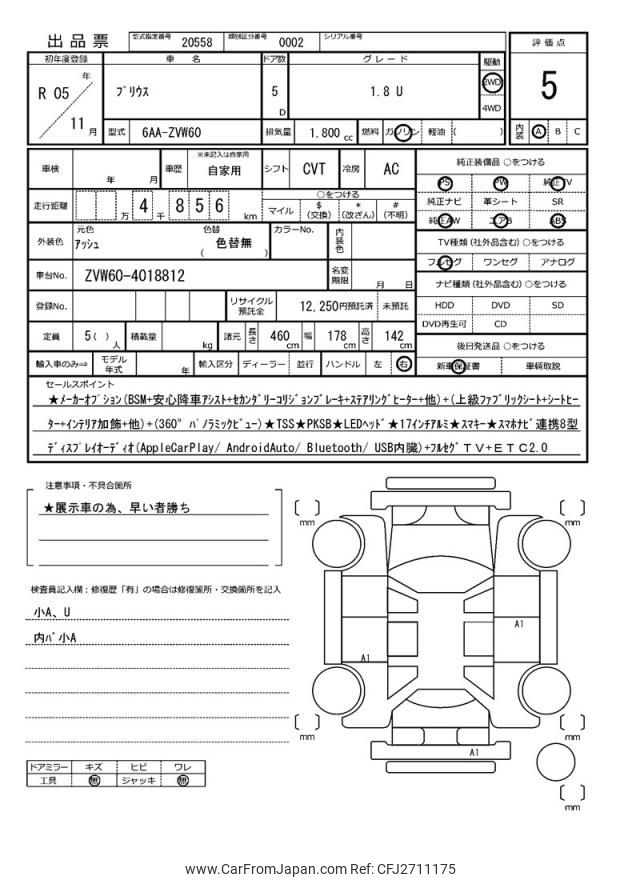 出品票 型式指定番号 20558 類別区分番号 0002 シリアル番号
評価点
5
初年度登録 車名 ドア数 グレード 駆動
R 05 年 11 月 プリウス 5 D 1.8 U 2WD 4WD
型式 6AA-ZVW60 排気量 1.800 cc 燃料 ガソリン 軽油 ( )
内装 A B C
車検 年 月 車歴 ※未記入は自家用 自家用 シフト CVT 冷房 AC
純正装備品 ○をつける
PS PW 純正TV
純正ナビ 革シート SR
純正AW エアB ABS
走行距離 万 4 千 8 5 6 km
○をつける
マイル $ (交換) * (改ざん) # (不明)
外装色 元色 アッシュ 色替 ( 色替無 ) カラーNo. 内装色
TV種類(社外品含む)○をつける
フルセグ ワンセグ アナログ
車台No. ZVW60-4018812 名変期限 月 日
ナビ種類(社外品含む)○をつける
HDD DVD SD
DVD再生可 CD
登録No. リサイクル預託金 12,250円預託済 未預託
定員 5( ) 人 積載量 kg 諸元 長さ 460 cm 幅 178 cm 高さ 142 cm
後日発送品 ○をつける
新車保証書 車輌取説
輸入車のみ⇒ モデル年式 年 輸入区分 ディーラー 並行 ハンドル 左 右
セールスポイント
★メーカーオプション(BSM+安心降車アシスト+セカンダリーコリジョンブレーキ+ステアリングヒーター+他)+(上級ファブリックシート+シートヒー
ター+インテリア加飾+他)+(360°パノラミックビュー)★TSS★PKSB★LEDヘッド★17インチアルミ★スマキー★スマホナビ連携8型
ディスプレイオーディオ(AppleCarPlay/ AndroidAuto/ Bluetooth/ USB内臓)+フルセグTV+ETC2.0
注意事項・不具合箇所
★展示車の為、早い者勝ち
検査員記入欄:修復歴「有」の場合は修復箇所・交換箇所を記入
小A、U
内バ小A
mm
mm
A1
A1
mm
mm
A1
mm
ドアミラー キズ ヒビ ワレ
工具 無 ジャッキ 無
www.CarFromJapan.com Ref: CFJ2711175